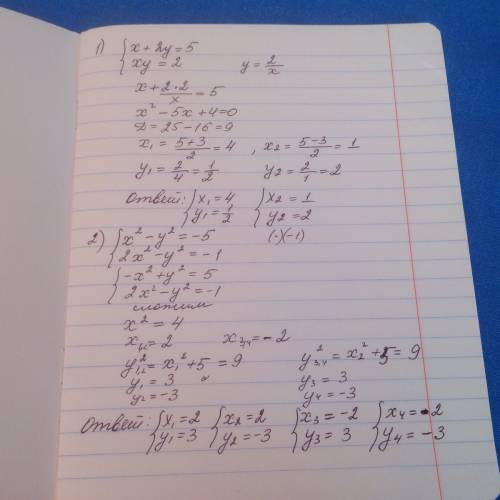 1) { x + 2y = 5
xy = 2    y = 2/x
x + 2·2/x = 5
x² - 5x + 4 = 0
D = 25 - 16 = 9
x₁ = (5+3)/2 = 4 , x₂ = (5-3)/2 = 1
y₁ = 2/4 = 1/2    y₂ = 2/1 = 2
Ответ: { x₁ = 4    { x₂ = 1
y₁ = 1/2    y₂ = 2
2) { x² - y² = -5    (·)(-1)
2x² - y² = -1
{ -x² + y² = 5
2x² - y² = -1
сложим
x² = 4
x₁,₂ = 2    x₃,₄ = -2
y₁,₂² = x₁² + 5 = 9    y₃,₄² = x₂² + 5 = 9
y₁ = 3    y₃ = 3
y₂ = -3    y₄ = -3
Ответ: { x₁ = 2    { x₂ = 2    { x₃ = -2    { x₄ = -2
y₁ = 3    y₂ = -3    y₃ = 3    y₄ = -3